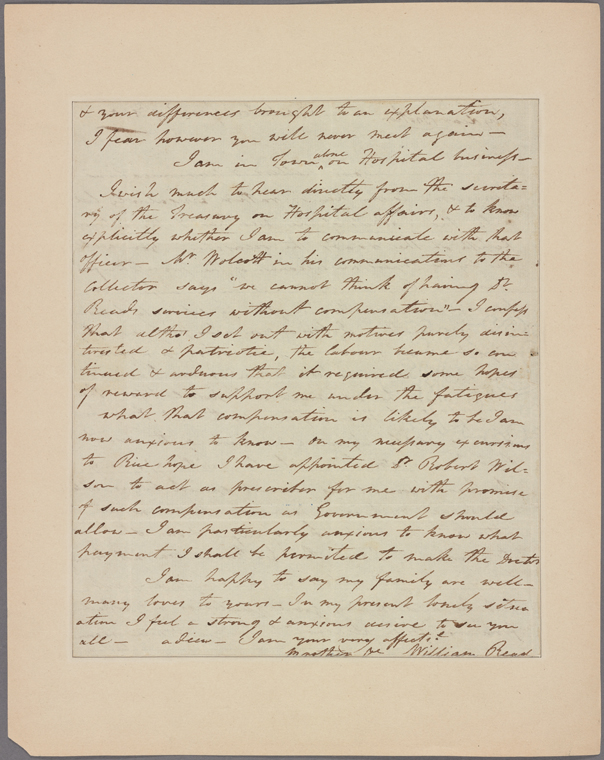 & your differences brought to an explanation,
I fear however you will never meet again —
I am in Town alone on Hospital business —
I wish much to hear directly from the secreta=
ry of the Treasury on Hospital affairs, & to know
explicitly whether I am to communicate with that
officer — Mr Wolcott in his communications to the
Collector says "we cannot think of having Dr.
Reads services without compensation" — I confess
that altho I set out with motives purely disin=
terested & patriotic, the labour became so con
tinued & arduous that it required some hopes
of reward to support me under the fatigues
what that compensation is likely to be I am
now anxious to know — on my necessary excursions
to Rice hope I have appointed Dr Robert Wil=
son to act as prescriber for me with promise
of such compensation as Government should
allow — I am particularly anxious to know what
payment I shall be permitted to make the Doctor
I am happy to say my family are well —
many loves to yours — In my present lonely situa
ation I feel a strong & anxious desire to see you
all — adieu — I am your very affecte
Brother &c William Read